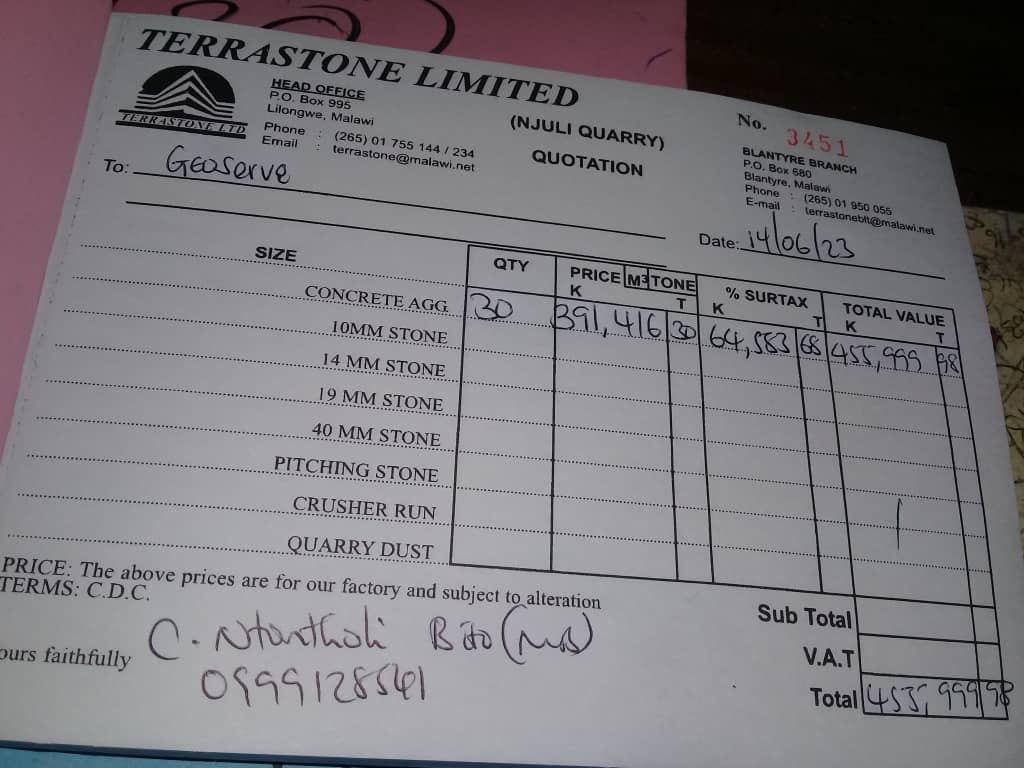 TERRASTONE LIMITED
TERRASTONE LTD
HEAD OFFICE
P.O. Box 995
Lilongwe, Malawi
Phone : (265) 01 755 144 / 234
Email : terrastone@malawi.net
(NJULI QUARRY)
QUOTATION
No. 3451
BLANTYRE BRANCH
P.O. Box 680
Blantyre, Malawi
Phone : (265) 01 950 055
E-mail : terrastoneblt@malawi.net
To: Geoserve
Date: 14/06/23
SIZE QTY PRICE M3 TONE % SURTAX TOTAL VALUE
K T K T K T
CONCRETE AGG 30 391,416 30 64,583 68 455,999 98
10MM STONE
14 MM STONE
19 MM STONE
40 MM STONE
PITCHING STONE
CRUSHER RUN
QUARRY DUST
PRICE: The above prices are for our factory and subject to alteration
TERMS: C.D.C.
Sub Total
V.A.T
Total 455,999 98
ours faithfully C. Ntontholi
0999128541